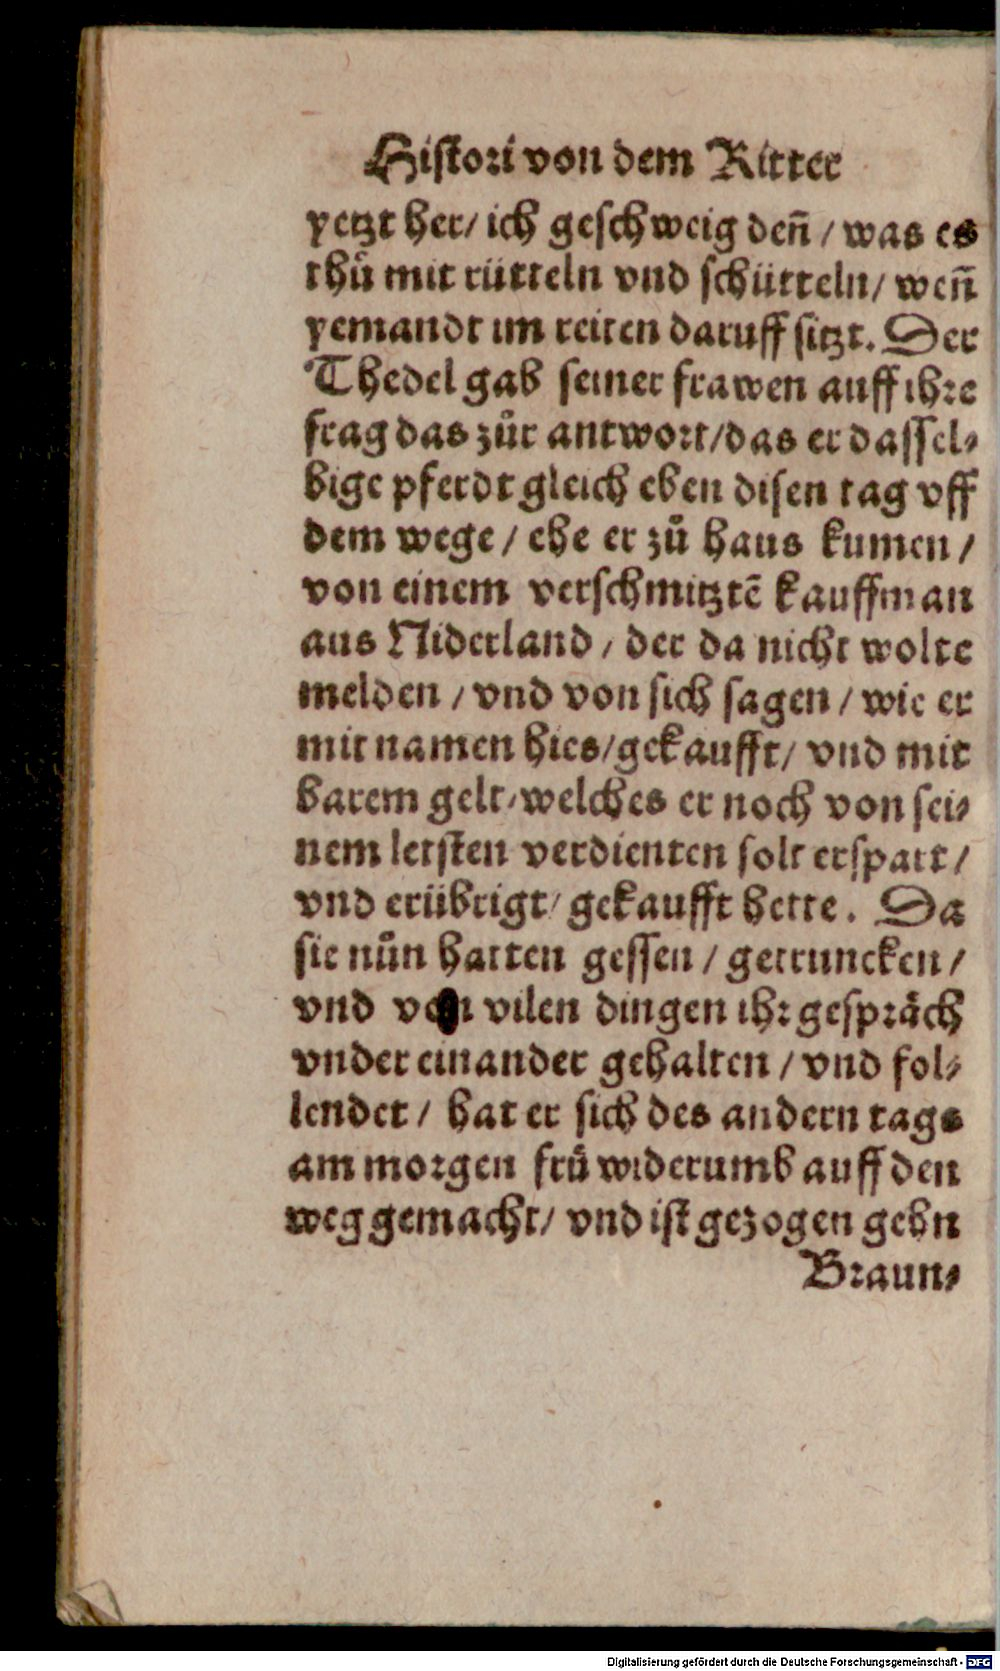 Histori von dem Ritter
yetzt her/ ich geschweig deñ / was es
thů mit rütteln vnd schütteln/ weñ
yemandt im reiten daruff sitzt. Der
Thedel gab seiner frawen auff ihre
frag das zůr antwort/das er dassel⸗
bige pferdt gleich eben disen tag vff
dem wege / ehe er zů haus kumen /
von einem verschmitztē kauffman
aus Niderland / der da nicht wolte
melden / vnd von sich sagen / wie er
mit namen hies/gekaufft/ vnd mit
barem gelt/welches er noch von sei⸗
nem letsten verdienten solt erspart /
vnd erübrigt/ gekaufft hette. Da
sie nůn hatten gessen / getruncken /
vnd von vilen dingen ihr gespräch
vnder einander gehalten / vnd fol⸗
lendet / hat er sich des andern tags
am morgen frü widerumb auff den
weg gemacht/ vnd ist gezogen gehn
Braun⸗
Digitalisierung gefördert durch die Deutsche Forschungsgemeinschaft - DFG